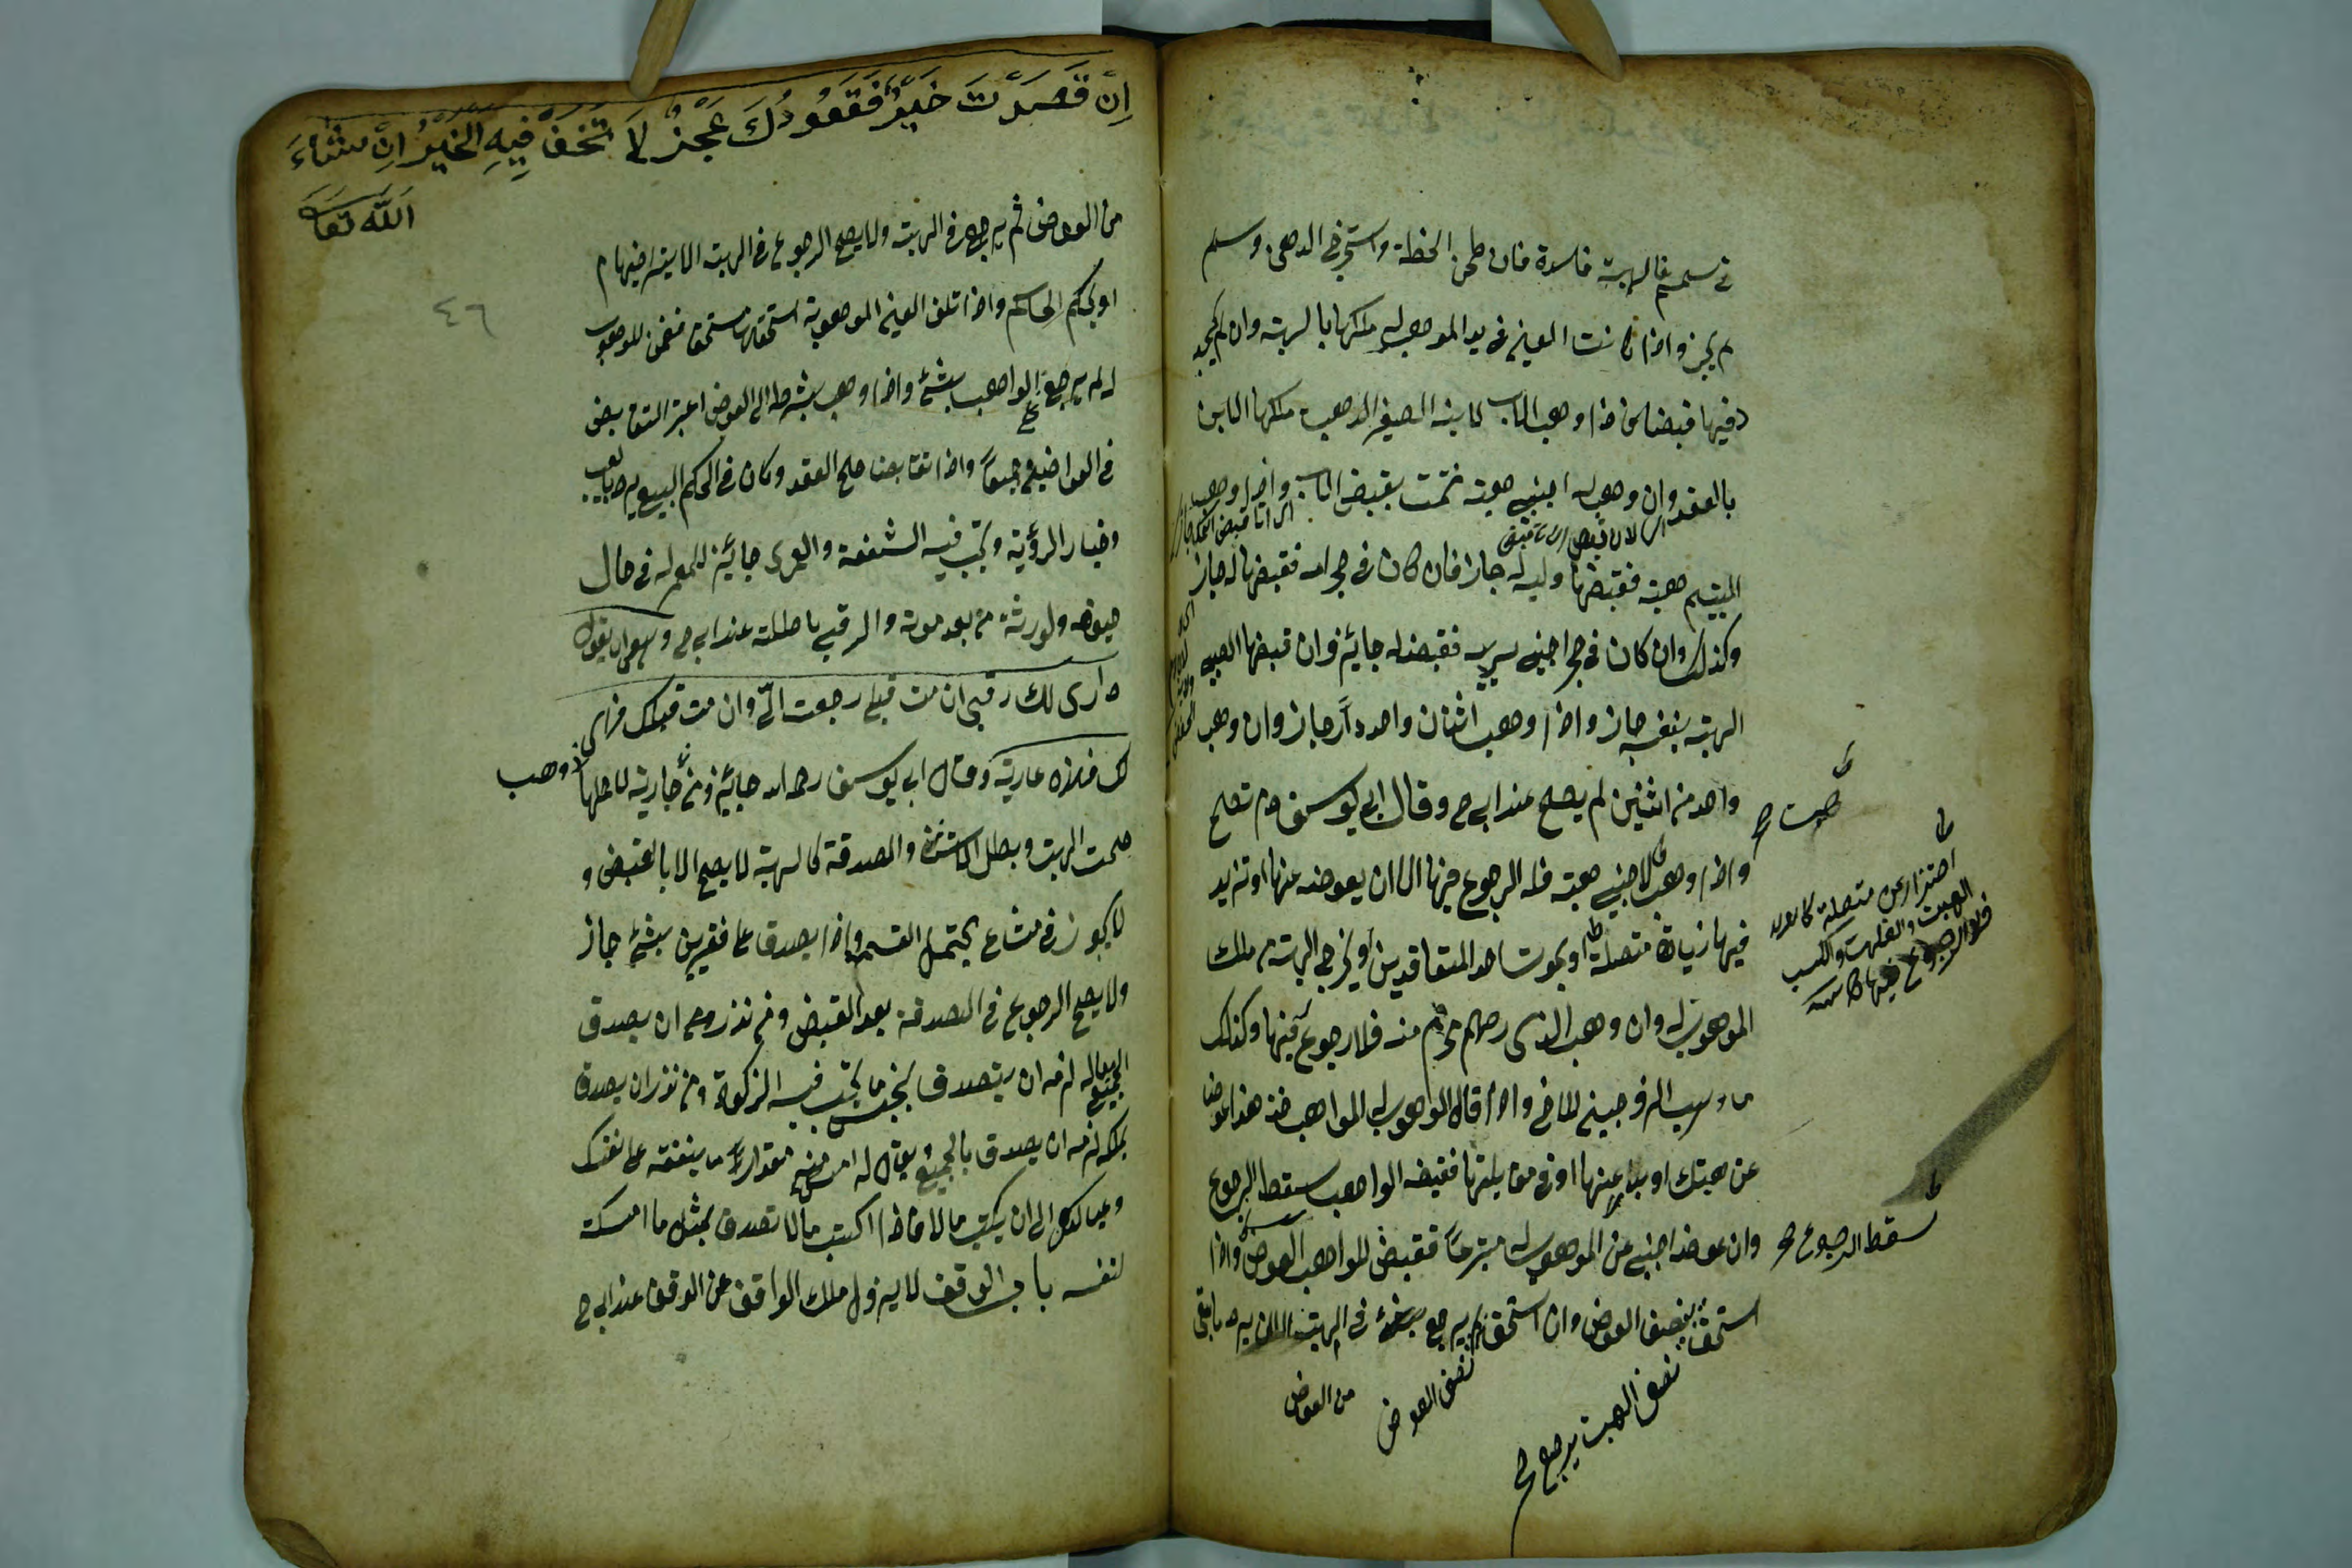 في سمسم فالهبة فاسدة فان طحن الحنطة واستخرج الدهن وسلم
لم يجز واذا كانت العين في يد الموهوب له ملكها بالهبة وان لم يجدد
فيها قبضا فاذا وهب الاب لابنه الصغير الذهب ملكها الابن
بالعقد وان وهب له اجنبي هبة تمت بقبض الاب واذا وهب
لليتيم هبة فقبضها وليه له جاز فان كان في حجر امه فقبضها له جاز
وكذلك وان كان في حجر اجنبي يربيه فقبضه له جايز وان قبضها الصبي
الهبة بنفسه جاز واذا وهب اثنان واحد دارا جاز وان وهب
واحد من اثنين لم يصح عند ابي ح وقال ابي يوسف وم تصح
هبت صح
واذا وهب لاجنبي هبة فله الرجوع فيها الا ان يعوضه عنها او تزيد
فيها زيادة متصلة او يموت احد المتعاقدين او يخرج الهبة من ملك
احتراز عن متصلة كالولد
فله الرجوع فيها
الموهوب له وان وهب الذي رحم محرم منه فلا رجوع فيها وكذلك
ما وهب الزوجين للاخر واذا قال الموهوب له للواهب خذ هذا عوضا
عن هبتك او بدلا عنها او في مقابلتها فقبضه الواهب سقط الرجوع
وان عوضه اجنبي عن الموهوب له متبرعا فقبض الواهب العوض واذا
سقط الرجوع صح
استحق نصف العوض وان استحق لم يرجع بشئ في الهبة الا ان يرد ما بقي
من العوض
نصف العوض
نصف الهبت يرجع
اِنْ قَصَدْتَ خَيْرٌ فَقَعُودُكَ عَجْزٌ لَا تَخَفْ فِيهِ الْخَيْرُ اِنْ شَاءَ
اَللّٰه تعا
٤٦
من العوض ثم يرجع في الهبة ولا يصح الرجوع في الهبة الا بتراضيهما
او بحكم الحاكم واذا تلف العين الموهوبة استحقها مستحق فضمن الموهوب
له لم يرجع الواهب بشئ واذا وهب بشرط الى العوض اعتبر التقابض
في العواضين جميعا واذا تقابضا صح العقد وكان في الحكم البيع يرد بالعيب
وخيار الرؤية وتجب فيه الشفعة والعمرى جائزة للمعمر له في حال
حيوته ولورثته من بعد موته والرقبى باطلة عند ابي ح وهو ان يقول
دارى لك رقبى ان مت قبلي رجعت الّي وان مت قبلك فهي
لك فهذه عارية وقال ابي يوسف رحمه الله جايز ومن جارية لا حملها
وهب
صحت الهبة وبطل الاستثناء والصدقة كالهبة لا يصح الا بالقبض و
لا يجوز في مشاع يحتمل القسمة واذا يصدق على فقيرين بشئ جاز
ولا يصح الرجوع في الصدقة بعد القبض ومن نذر وهي ان يصدق
بماله لزمه ان يتصدق بجنس ما يجب فيه الزكوة ومن نذر ان يصدق
بملكه لزمه ان يصدق بالجميع يقال له امسك منه مقدار ما ينفقه على نفسك
وعيالك الى ان يكتب مالا فاذا اكتب مالا تصدق بمثل ما امسكت
لنفسه باب الوقف لا يزول ملك الواقف عن الوقف عند ابي ح